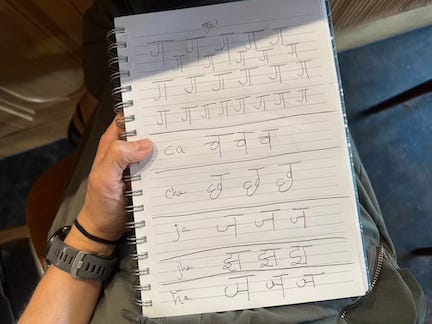 ग ग ग ग ग
ग ग ग ग ग
ग ग ग ग ग ग
ग ग ग ग ग ग ग ग
ca च च च
cha छ छ छ
ja ज ज ज
jha झ झ झ
ña ञ ञ ञ